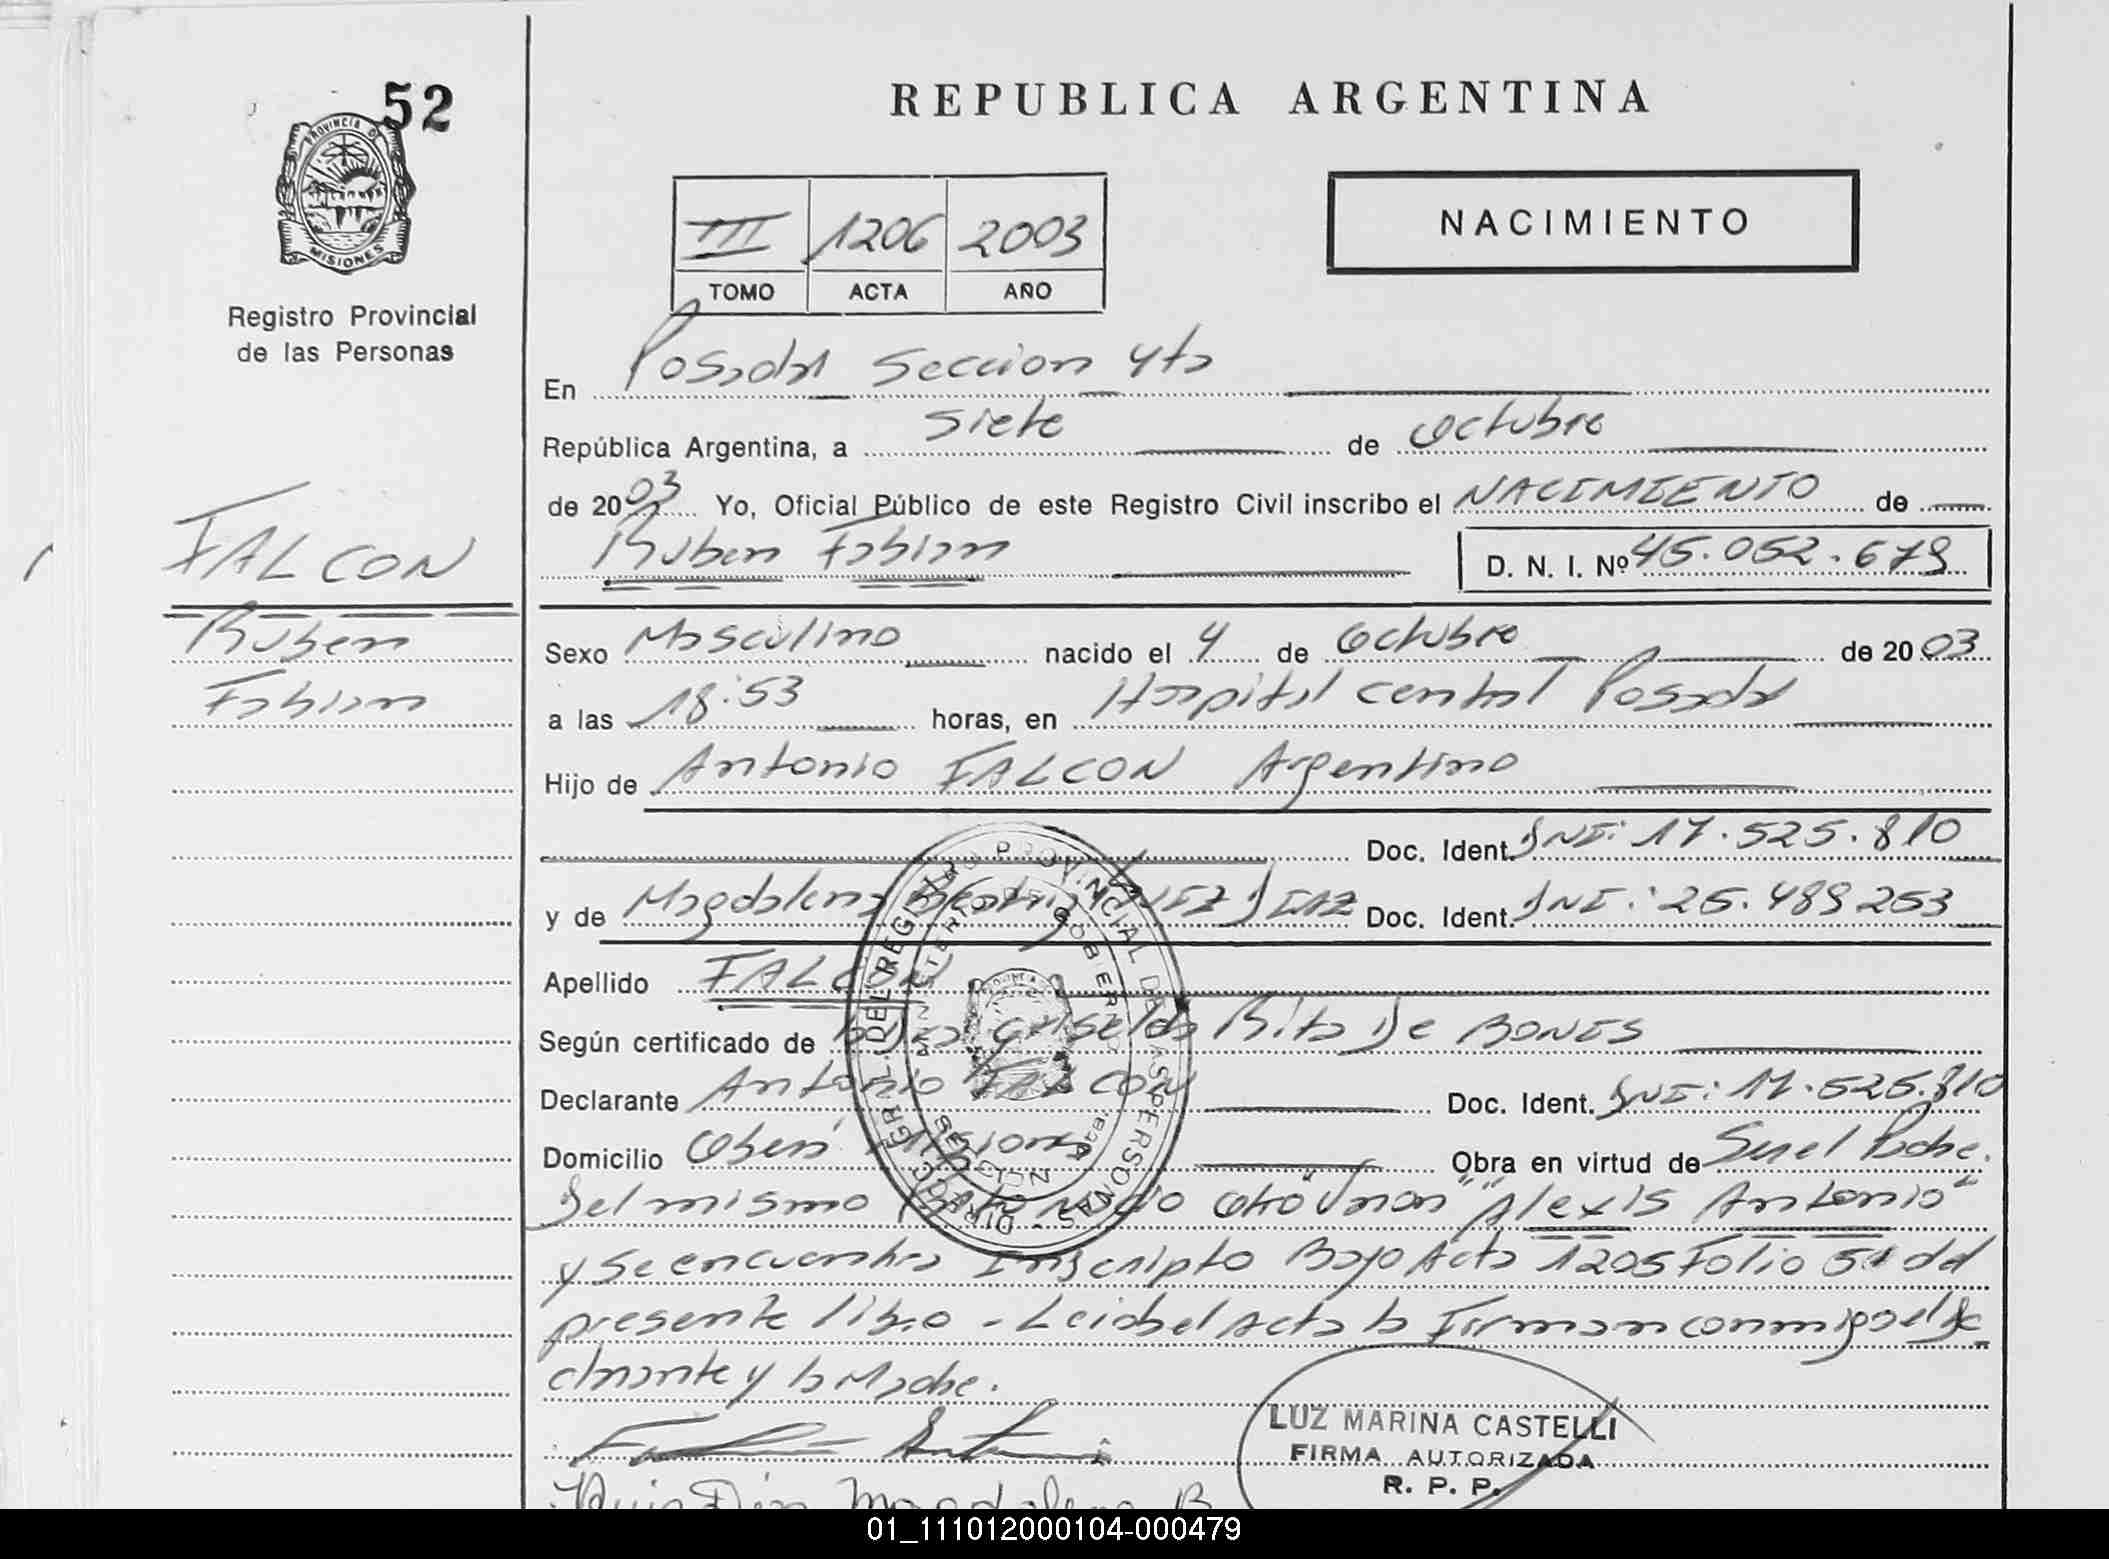 52
PROVINCIA DE
MISIONES
Registro Provincial
de las Personas
FALCON
Ruben
Fabian
REPUBLICA ARGENTINA
NACIMIENTO
III 1206 2003
TOMO ACTA AÑO
En Posadas Seccion 4ta
República Argentina, a siete de octubre
de 2003 Yo, Oficial Público de este Registro Civil inscribo el NACIMIENTO de
Ruben Fabian D. N. I. Nº 45.052.679
Sexo Masculino nacido el 4 de Octubre de 2003
a las 18:53 horas, en Hospital central Posadas
Hijo de Antonio FALCON Argentino
Doc. Ident. DNI: 17.525.810
y de Magdalena Beatriz DIAZ Doc. Ident. DNI: 25.489253
Apellido FALCON
Según certificado de Griselda Rita De BONIS
Declarante Antonio FALCON Doc. Ident. DNI: 17.525.810
Domicilio Oberá Misiones Obra en virtud de Ser el Padre.
Del mismo nacio otro Varon "Alexis Antonio"
y se encuentra Inscripto Bajo Acta 1205 Folio 51 del
presente libro - Leida el Acta la Firman conmigo el de
clarante y la Madre.
LUZ MARINA CASTELLI
FIRMA AUTORIZADA
R. P. P.
Magdalena B
DIRECC. GRAL. DEL REGISTRO PROVINCIAL DE LAS PERSONAS
MINISTERIO DE GOBIERNO
01_111012000104-000479